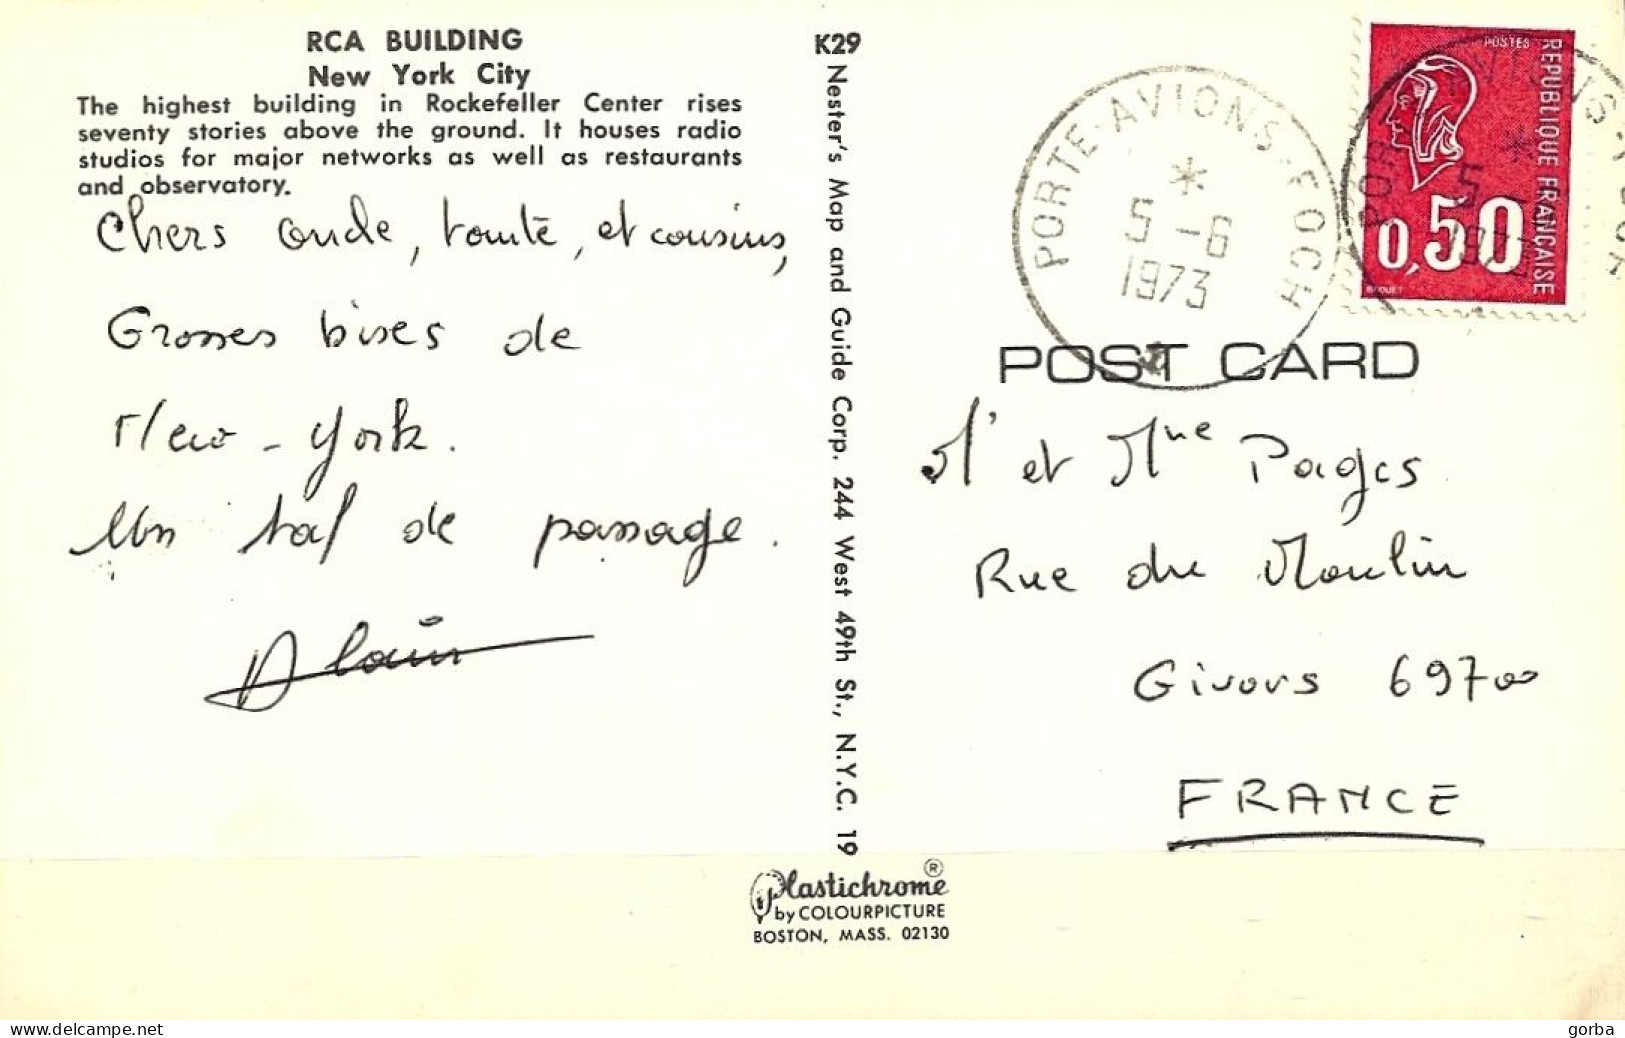 RCA BUILDING
New York City
The highest building in Rockefeller Center rises
seventy stories above the ground. It houses radio
studios for major networks as well as restaurants
and observatory.
Chers oncle, tante, et cousins,
Grosses bises de
New-York.
Un taf de passage.
Alain
K29
Nester's Map and Guide Corp. 244 West 49th St., N.Y.C. 19
PORTE-AVIONS-FOCH
5-6
1973
POSTES
REPUBLIQUE FRANÇAISE
0,50
BEQUET
POST CARD
Mr et Mme Pages
Rue du Moulin
Givors 69700
FRANCE
Plastichrome®
by COLOURPICTURE
BOSTON, MASS. 02130
www.delcampe.net
gorba